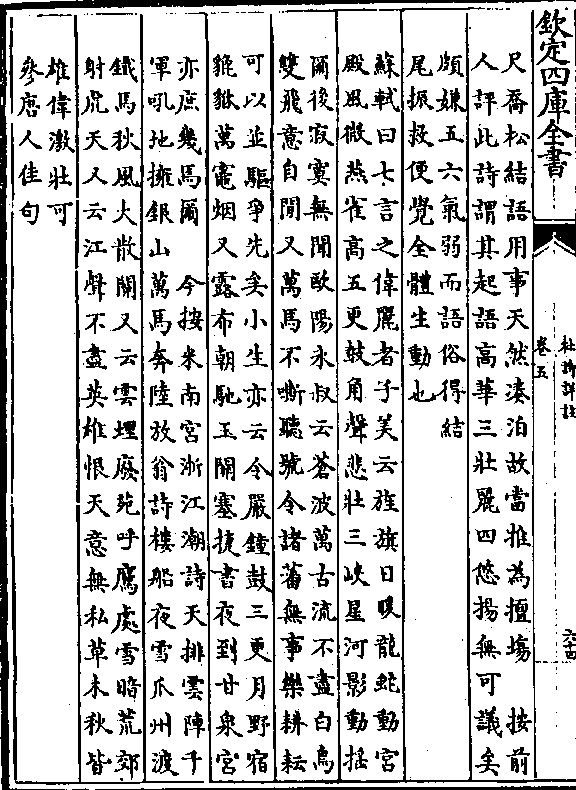 欽定四庫全書
杜詩詳註
卷五
六十四
尺喬松結語用事天然湊泊故當推為擅塲　按前
人評此詩謂其起語高華三壯麗四悠揚無可議矣
頗嫌五六氣弱而語俗得結
尾振救便覺全體生動也
蘇軾曰七言之偉麗者子美云旌旗日暖龍蛇動宮
殿風微燕雀高五更鼓角聲悲壯三峽星河影動揺
爾後寂寞無聞歐陽永叔云蒼波萬古流不盡白鳥
雙飛意自閒又萬馬不嘶聽號令諸蕃無事樂耕耘
可以並驅爭先矣小生亦云令嚴鐘鼓三更月野宿
貔貅萬竈烟又露布朝馳玉關塞捷書夜到甘泉宮
亦庶幾焉爾　今按米南宮浙江潮詩天排雲陣千
軍吼地擁銀山萬馬奔陸放翁詩樓船夜雪瓜州渡
鐵馬秋風大散關又云雲埋廢苑呼鷹處雪暗荒郊
射虎天又云江聲不盡英雄恨天意無私草木秋皆
雄偉激壯可
參唐人佳句